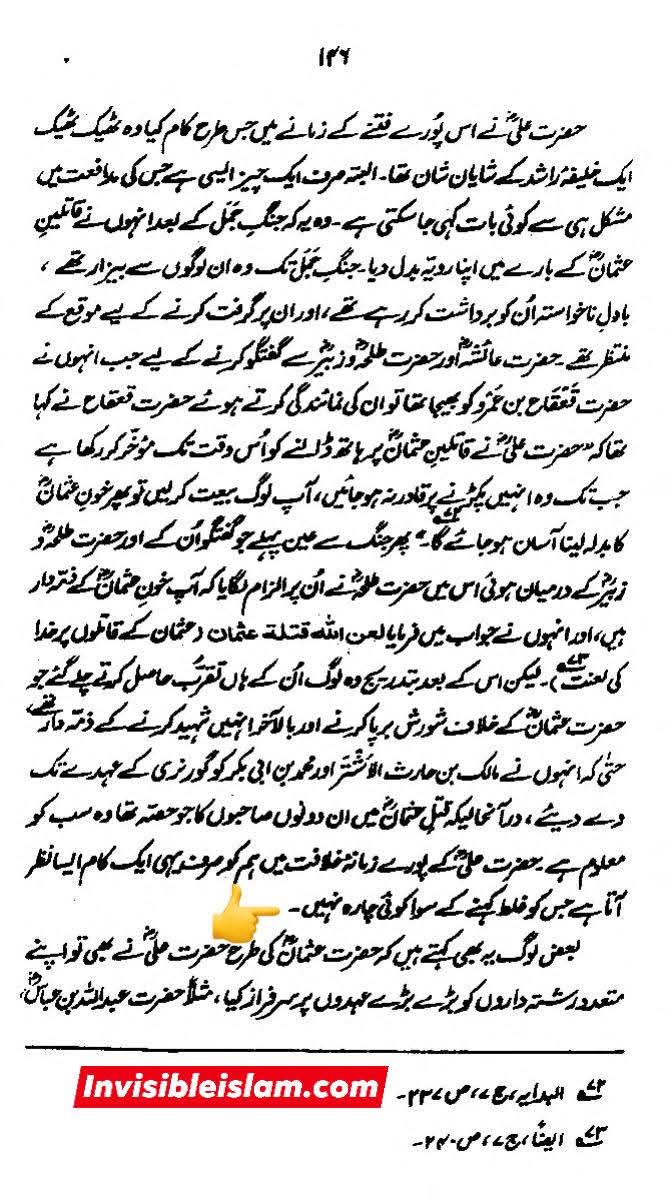 ۱۴۶
حضرت علیؓ نے اس پُورے فتنے کے زمانے میں جس طرح کام کیا وہ ٹھیک ٹھیک
ایک خلیفۂ راشد کے شایان شان تھا۔ البتہ صرف ایک چیز ایسی ہے جس کی مدافعت میں
مشکل ہی سے کوئی بات کہی جا سکتی ہے۔ وہ یہ کہ جنگِ جَمَل کے بعد انہوں نے قاتلینِ
عثمانؓ کے بارے میں اپنا رویّہ بدل دیا۔ جنگِ جَمَل تک وہ ان لوگوں سے بیزار تھے،
بادلِ ناخواستہ اُن کو برداشت کر رہے تھے، اور ان پر گرفت کرنے کے لیے موقع کے
منتظر تھے۔ حضرت عائشہؓ اور حضرت طلحہؓ و زبیرؓ سے گفتگو کرنے کے لیے جب انہوں نے
حضرت قَعْقَاع بن عَمْرو کو بھیجا تھا تو ان کی نمائندگی کرتے ہوئے حضرت قعقاع نے کہا
تھا کہ "حضرت علیؓ نے قاتلینِ عثمانؓ پر ہاتھ ڈالنے کو اُس وقت تک مؤخر کر رکھا ہے
جب تک وہ انہیں پکڑنے پر قادر نہ ہو جائیں، آپ لوگ بیعت کر لیں تو پھر خونِ عثمانؓ
کا بدلہ لینا آسان ہو جائے گا۔"۷۲ پھر جنگ سے عین پہلے جو گفتگو اُن کے اور حضرت طلحہؓ و
زبیرؓ کے درمیان ہوئی اس میں حضرت طلحہؓ نے اُن پر الزام لگایا کہ آپ خونِ عثمانؓ کے ذمّہ دار
ہیں، اور انہوں نے جواب میں فرمایا لعن اللہ قتلة عثمان (عثمان کے قاتلوں پر خدا
کی لعنت)۷۳۔ لیکن اس کے بعد بتدریج وہ لوگ اُن کے ہاں تقرُّب حاصل کرتے چلے گئے جو
حضرت عثمانؓ کے خلاف شورش برپا کرنے اور بالآخر انہیں شہید کرنے کے ذمّہ دار تھے،
حتٰی کہ انہوں نے مالک بن حارث الاَشْتَر اور محمد بن ابی بکر کو گورنری کے عہدے تک
دے دیئے، درآنحالیکہ قتلِ عثمانؓ میں ان دونوں صاحبوں کا جو حصّہ تھا وہ سب کو
معلوم ہے۔ حضرت علیؓ کے پورے زمانۂ خلافت میں ہم کو صرف یہی ایک کام ایسا نظر
آتا ہے جس کو غلط کہنے کے سوا کوئی چارہ نہیں۔
بعض لوگ یہ بھی کہتے ہیں کہ حضرت عثمانؓ کی طرح حضرت علیؓ نے بھی تو اپنے
متعدد رشتہ داروں کو بڑے بڑے عہدوں پر سرفراز کیا، مثلاً حضرت عبداللہ بن عباسؓ،
۷۲ البدایہ، ج ۷، ص ۲۳۷۔
Invisibleislam.com
۷۳ ایضاً، ج ۷، ص ۲۴۰۔